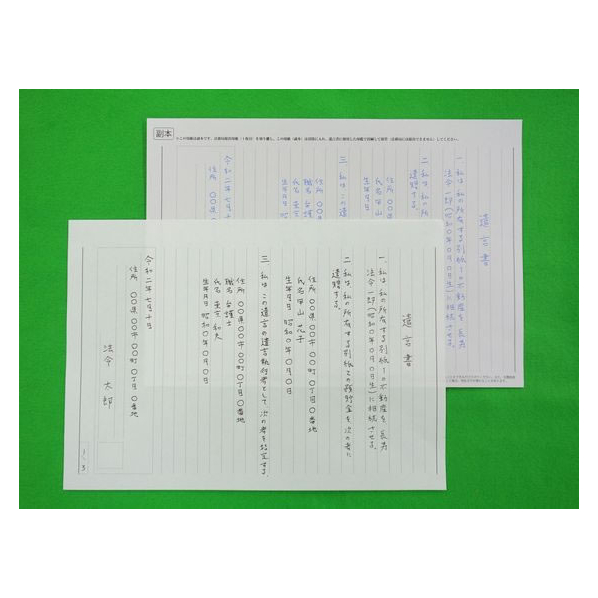 遺言書
一、私は、私の所有する別紙1の不動産を、長男
法令一郎(昭和〇年〇月〇日生)に相続させる。
二、私は、私の所有する別紙2の預貯金を、次の者に
遺贈する。
住所 〇〇県〇〇市〇〇町〇丁目〇番地
氏名 甲山花子
生年月日 昭和〇年〇月〇日
三、私は、この遺言の遺言執行者として、次の者を指定する。
住所 〇〇県〇〇市〇〇町〇丁目〇番地
職名 弁護士
氏名 東京和夫
生年月日 昭和〇年〇月〇日
令和二年七月十日
住所 〇〇県〇〇市〇〇町〇丁目〇番地
法令太郎
1/3
副本
遺言書
一、私は、私の所有する別紙1の不動産を、長男
法令一郎(昭和〇年〇月〇日生)に相続させる。
二、私は、私の所
遺贈する。
住所 〇〇県
氏名 甲山
生年月日
三、私は、この遺
住所 〇〇
職名 弁護
氏名 東京
生年月日 昭
令和二年七月十
住所 〇〇県